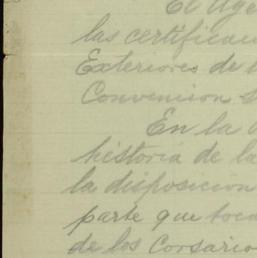 El Age
las certifican
Exteriores de
Convencion s
En la
historia de la
la disposicion
parte que toca
de los Corsario